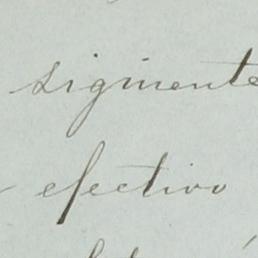 sigmente
efectivo